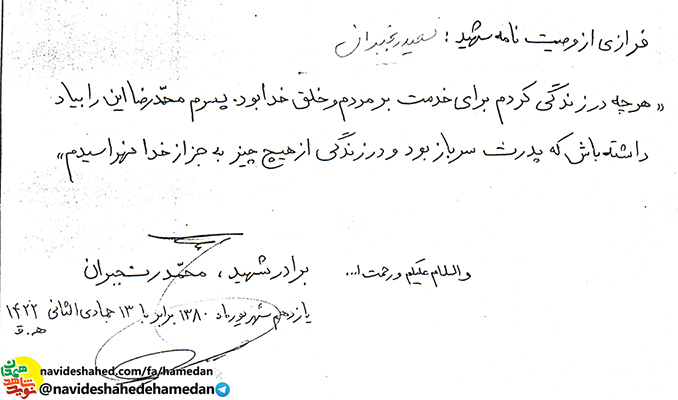 فرازی از وصیت نامه شهید : سعید رنجبران
« هرچه در زندگی کردم برای خدمت بر مردم و خلق خدا بود. پسرم محمّدرضا این را بیاد
داشته باش که پدرت سرباز بود و در زندگی از هیچ چیز به جز از خدا نهراسیدم »
والسلام علیکم و رحمت ا...
برادر شهید ، محمّد رنجبران
یازدهم شهریورماه ۱۳۸۰ برابر با ۱۳ جمادی الثانی ۱۴۲۲
ه.ق
navideshahed.com/fa/hamedan
@navideshahedehamedan